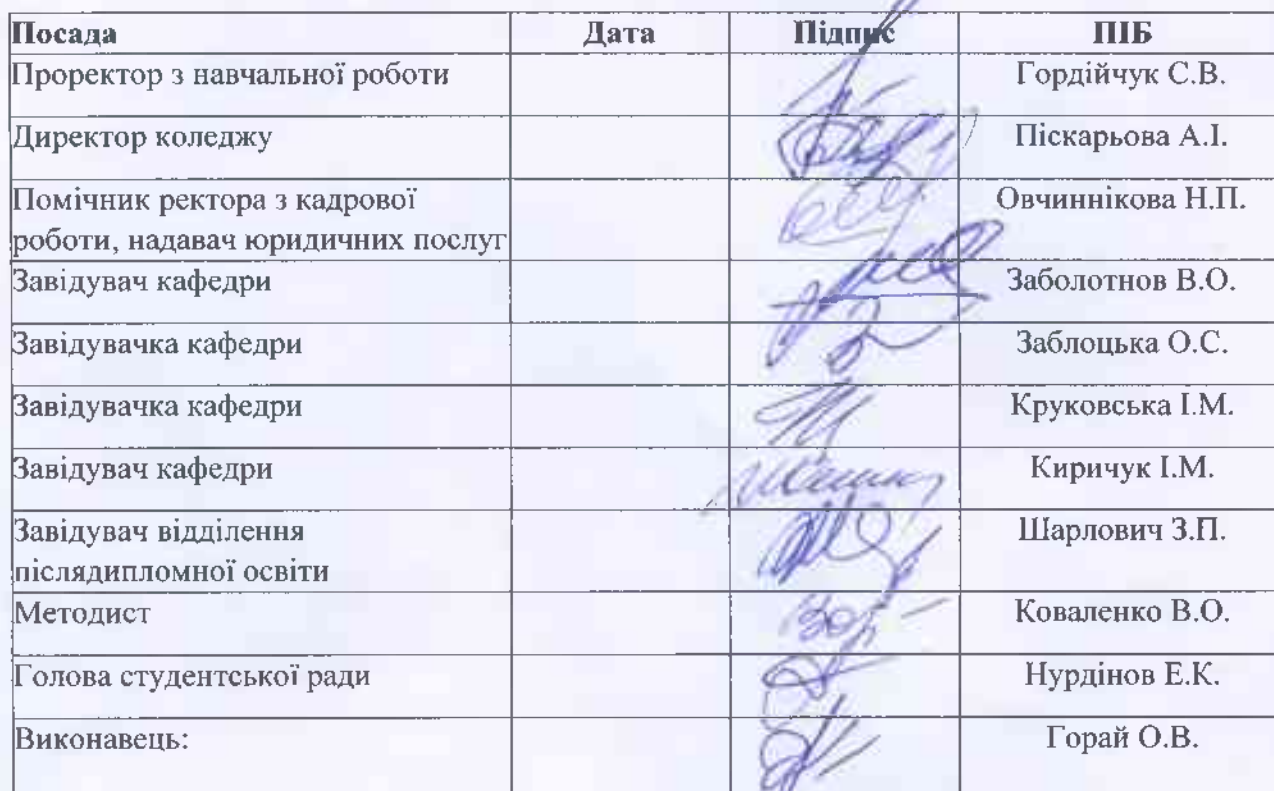 Посада Дата Підпис ПІБ
Проректор з навчальної роботи Гордійчук С.В.
Директор коледжу Піскарьова А.І.
Помічник ректора з кадрової Овчиннікова Н.П.
роботи, надавач юридичних послуг
Завідувач кафедри Заболотнов В.О.
Завідувачка кафедри Заблоцька О.С.
Завідувачка кафедри Круковська І.М.
Завідувач кафедри Киричук І.М.
Завідувач відділення Шарлович З.П.
післядипломної освіти
Методист Коваленко В.О.
Голова студентської ради Нурдінов Е.К.
Виконавець: Горай О.В.